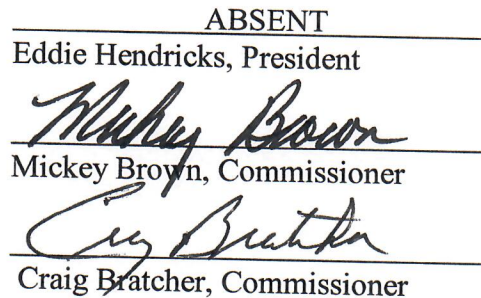 ABSENT
Eddie Hendricks, President
Mickey Brown
Mickey Brown, Commissioner
Craig Bratcher
Craig Bratcher, Commissioner